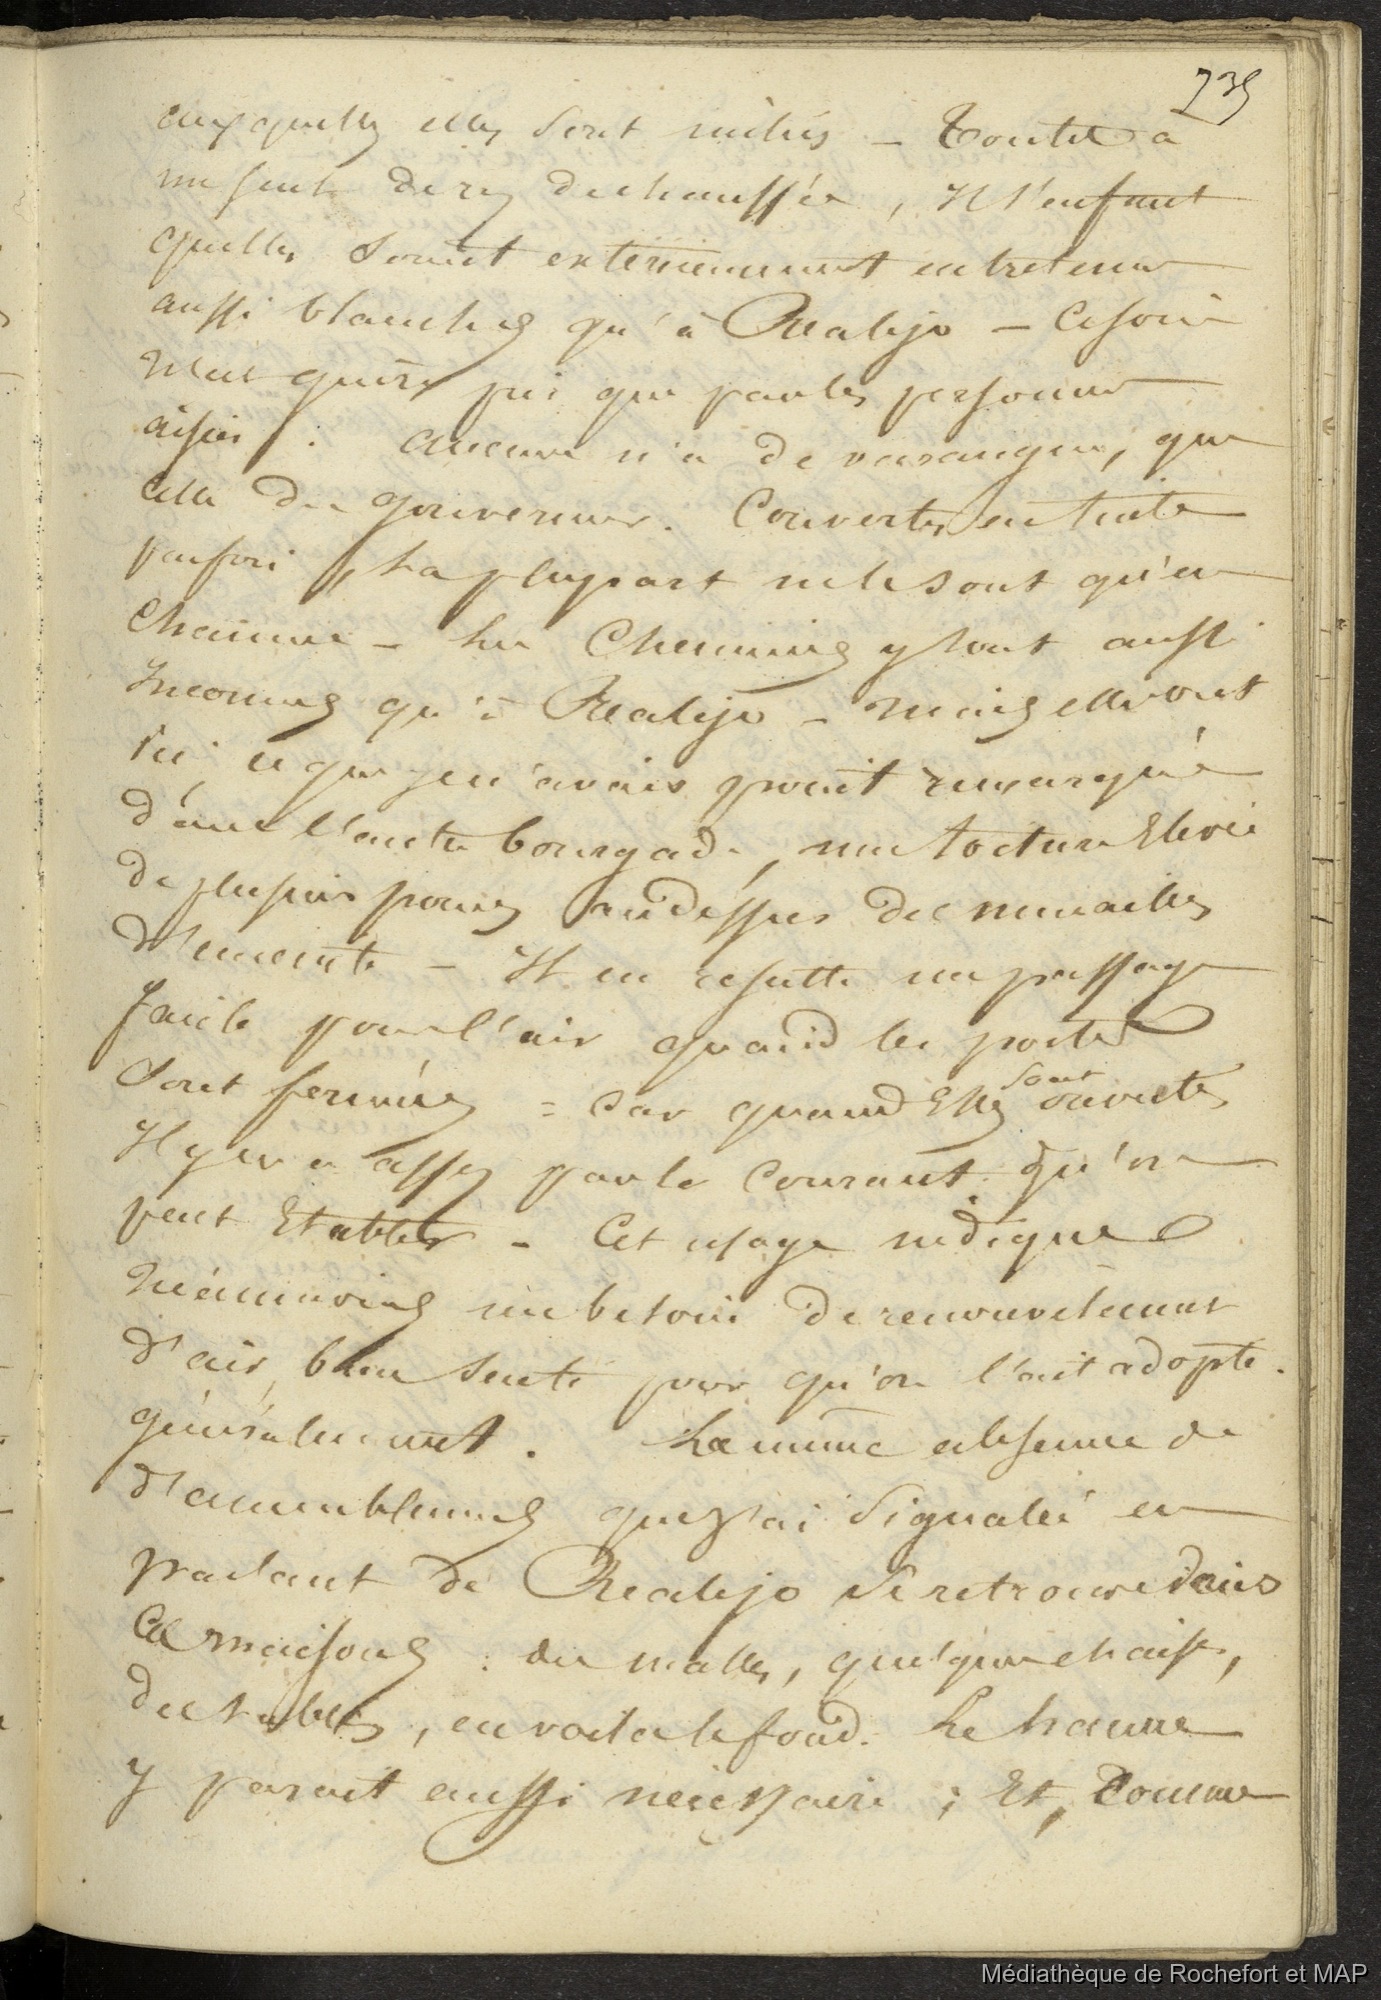 235
auxquelles elles sont mêlées – Toutes à
un seul de rez de chaussée, Il s'en faut
quelles soient extérieurement entretenues
aussi blanches qu'à Realejo – Ce soin
n'est guères pris que par les personnes
aisées : aucune n'a de varangue, que
celle du gouverneur. Couvertes en tuiles
parfois, La plupart ne le sont qu'en
Chaume – Les Cheminées y sont aussi
Inconnues qu'à Realejo – mais elles ont
ici, ce que je n'avais point remarqué
dans l'autre bourgade, une toiture Elevée
de plusieurs pouces au dessus des murailles
d'enceinte – Il en resulte un passage
facile pour l'air quand les portes
sont fermées = Car quand Elles sont ouvertes
Il y en a assez par le Courant qu'on
peut Etablir – Cet usage indique
néanmoins un besoin de renouvelement
d'air, bien senti pour qu'on l'ait adopté
généralement. La même absence de
d'ameublemens que j'ai signalée en
parlant de Realejo se retrouve dans
Ces maisons : des malles, quelques chaises,
des tables, en voila le fond. Le hamac
y parait aussi nécessaire ; Et, Comme
Médiathèque de Rochefort et MAP